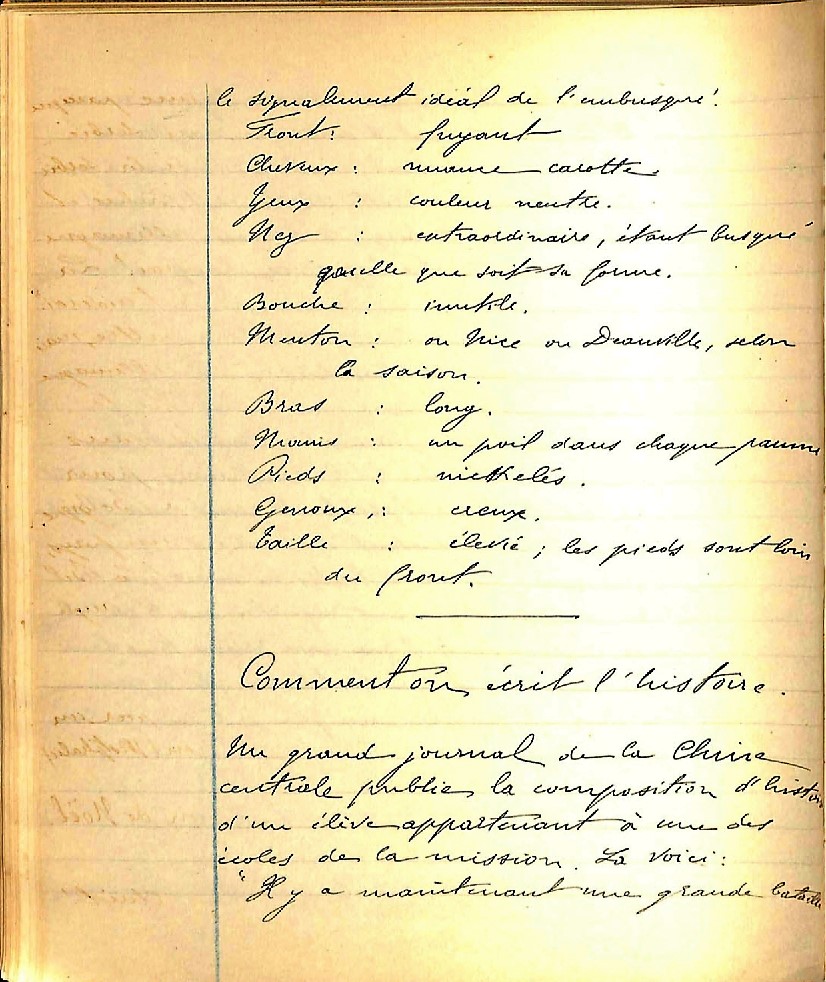 le signalement idéal de l'embusqué.
Front : fuyant
Cheveux : nuance carotte.
Yeux : couleur neutre.
Nez : extraordinaire, étant busqué
quelle que soit sa forme.
Bouche : inutile.
Menton : ou Nice ou Deauville, selon
la saison.
Bras : long.
Mains : un poil dans chaque paume
Pieds : nickelés.
Genoux : creux.
Taille : élevée ; les pieds sont loin
du front.
Comment on écrit l'histoire.
Un grand journal de la Chine
centrale publie la composition d'histoire
d'un élève appartenant à une des
écoles de la mission. La voici :
"Il y a maintenant une grande bataille